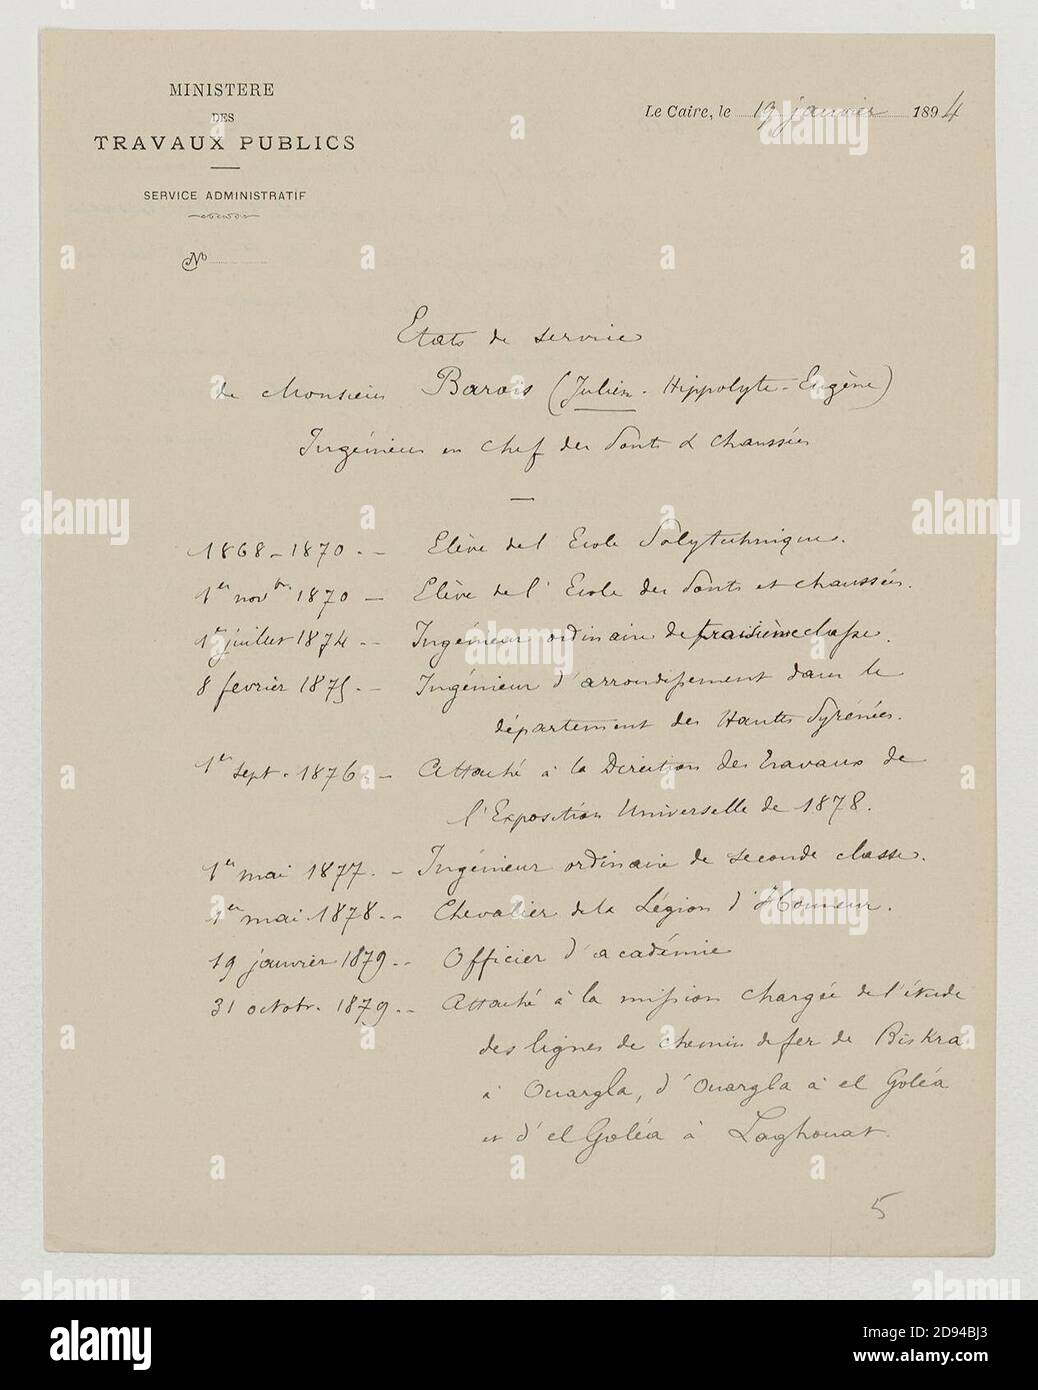 MINISTERE
DES
TRAVAUX PUBLICS
SERVICE ADMINISTRATIF
No
Le Caire, le 19 janvier 1894
Etats de service
de Monsieur Barois (Julien-Hippolyte-Eugène)
Ingénieur en chef des Ponts & chaussées
1868-1870. - Elève de l'Ecole Polytechnique.
1er novbre 1870 - Elève de l'Ecole des Ponts et chaussées.
1er juillet 1874 - Ingénieur ordinaire de troisième classe.
8 fevrier 1875. - Ingénieur d'arrondissement dans le
département des Hautes Pyrénées.
1er sept. 1876 - Attaché à la Direction des Travaux de
l'Exposition Universelle de 1878.
1er mai 1877. - Ingénieur ordinaire de seconde classe.
1er mai 1878. - Chevalier de la Légion d'Honneur.
19 janvier 1879. - Officier d'académie
31 octobr. 1879. - Attaché à la mission chargée de l'étude
des lignes de chemin de fer de Biskra
à Ouargla, d'Ouargla à el Goléa
et d'el Goléa à Laghouat.
5
alamy
Image ID: 2D94BJ3
www.alamy.com